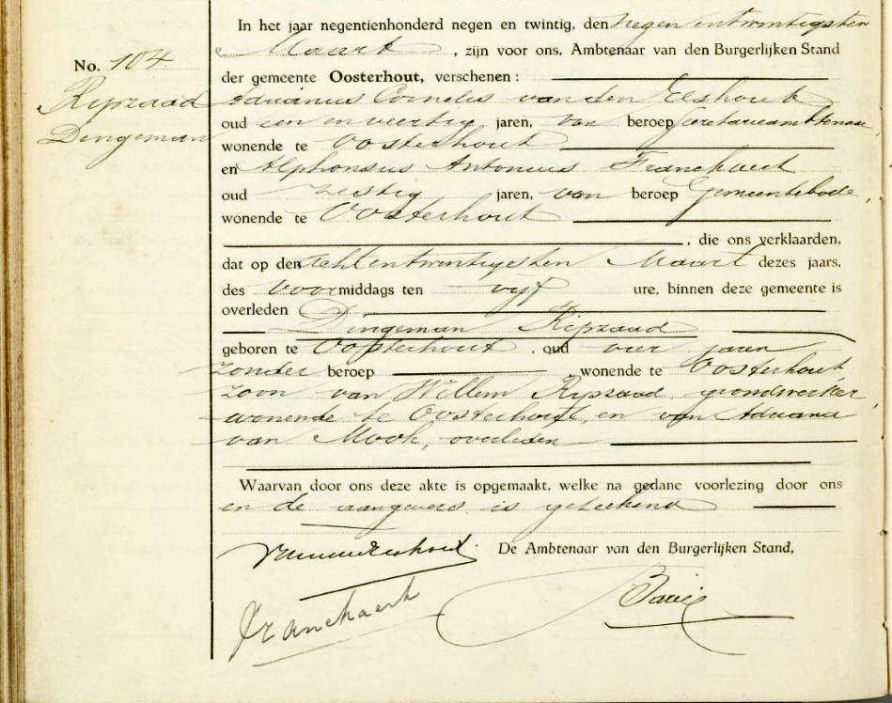 No. 104
Rijpzaad
Dingeman
In het jaar negentienhonderd negen en twintig, den negen en twintigsten
Maart, zijn voor ons, Ambtenaar van den Burgerlijken Stand
der gemeente Oosterhout, verschenen:
Adrianus Cornelis van den Elshout
oud een en veertig jaren, van beroep secretarieambtenaar,
wonende te Oosterhout
en Alphonsus Antonius Franckaert
oud zestig jaren, van beroep gemeentebode,
wonende te Oosterhout
, die ons verklaarden,
dat op den achtentwintigsten Maart dezes jaars,
des voormiddags ten vijf ure, binnen deze gemeente is
overleden
Dingeman Rijpzaad
geboren te Oosterhout, oud vier jaren
zonder beroep, wonende te Oosterhout
zoon van Willem Rijpzaad, grondwerker,
wonende te Oosterhout, en van Adriana
van Mook, overleden
Waarvan door ons deze akte is opgemaakt, welke na gedane voorlezing door ons
en de aangevers is geteekend
De Ambtenaar van den Burgerlijken Stand,
Franckaert